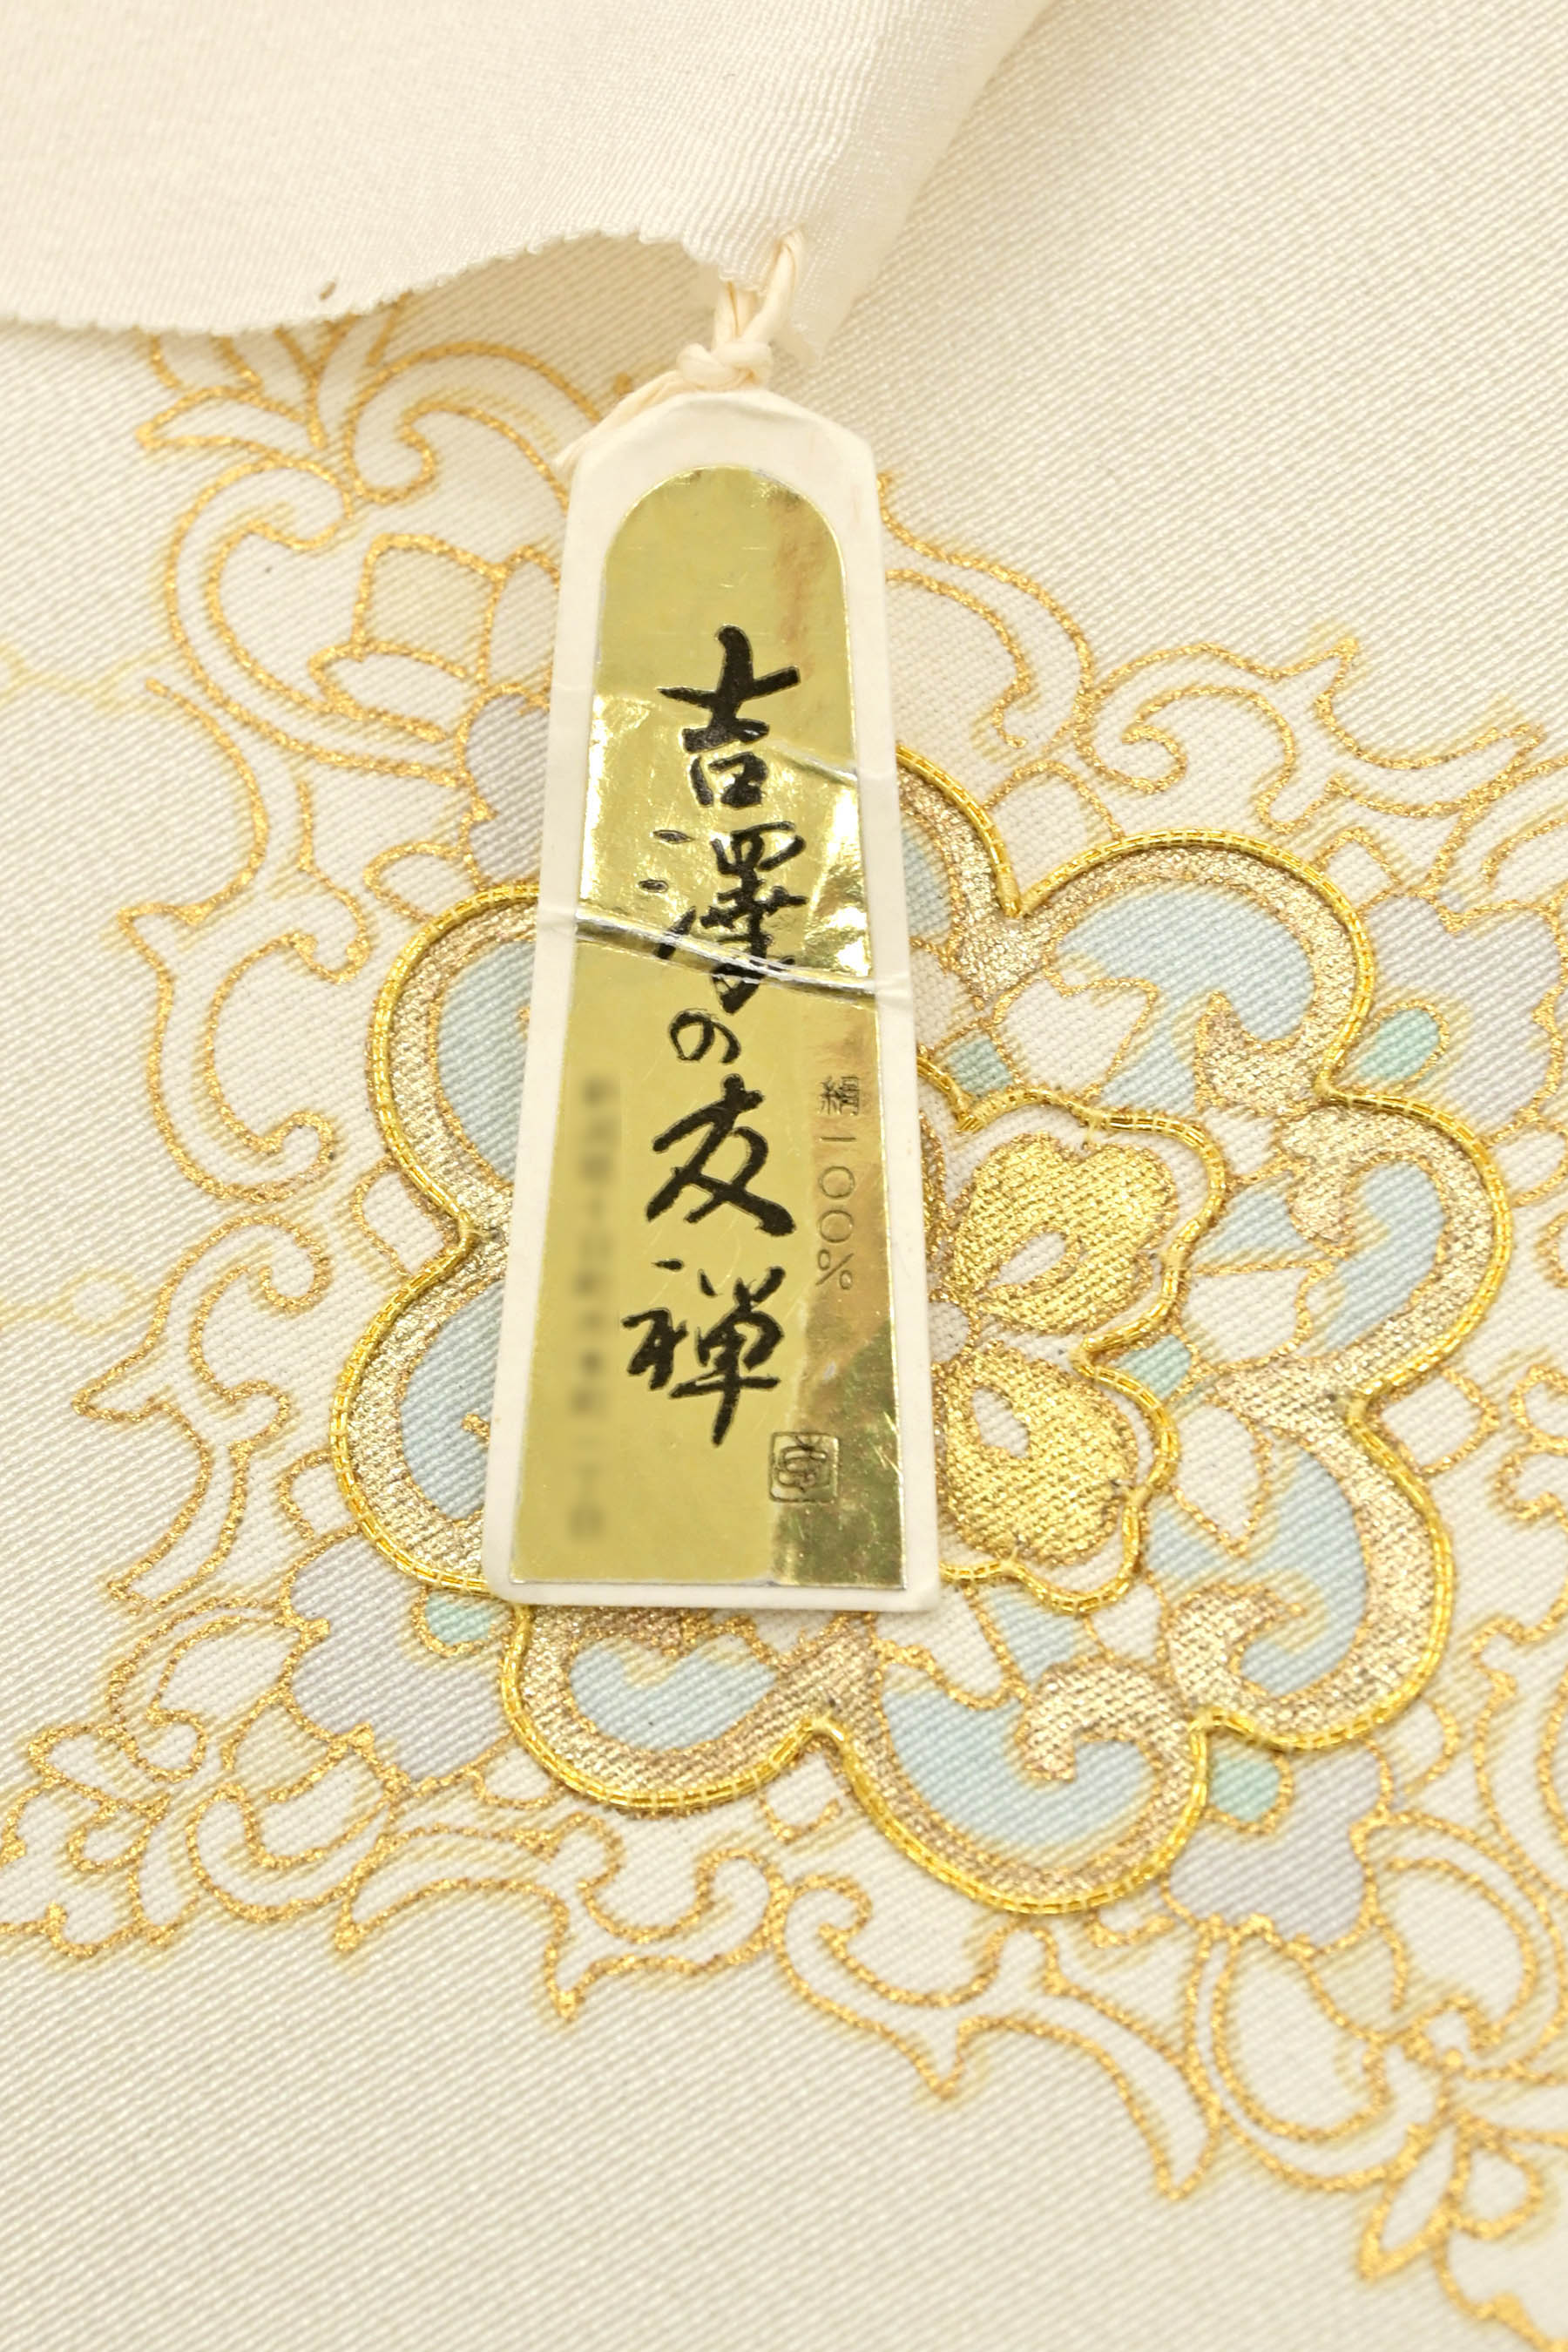 絹100%
吉澤の友禅